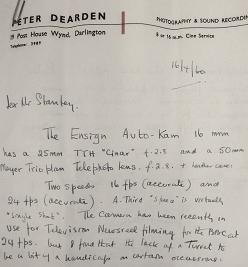 PETER DEARDEN
PHOTOGRAPHY & SOUND RECORDING
19 Post House Wynd, Darlington
8 or 16 m.m. Cine Service
Telephone: 3989
16/4/60
Dear Mr Stanley.
The Ensign Auto-Kam 16 mm
has a 25mm TTH "Cinar" f.2.5 and a 50mm
Meyer Trioplan Telephoto lens. f.2.8. + leather case.
Two speeds 16 fps (accurate) and
24 fps (accurate). A Third "speed" is virtually
"single shot". The Camera has been recently in
use for Television Newsreel filming for the BBC at
24 fps. but I find that the lack of a Turret to
be a bit of a handicap on certain occasions.